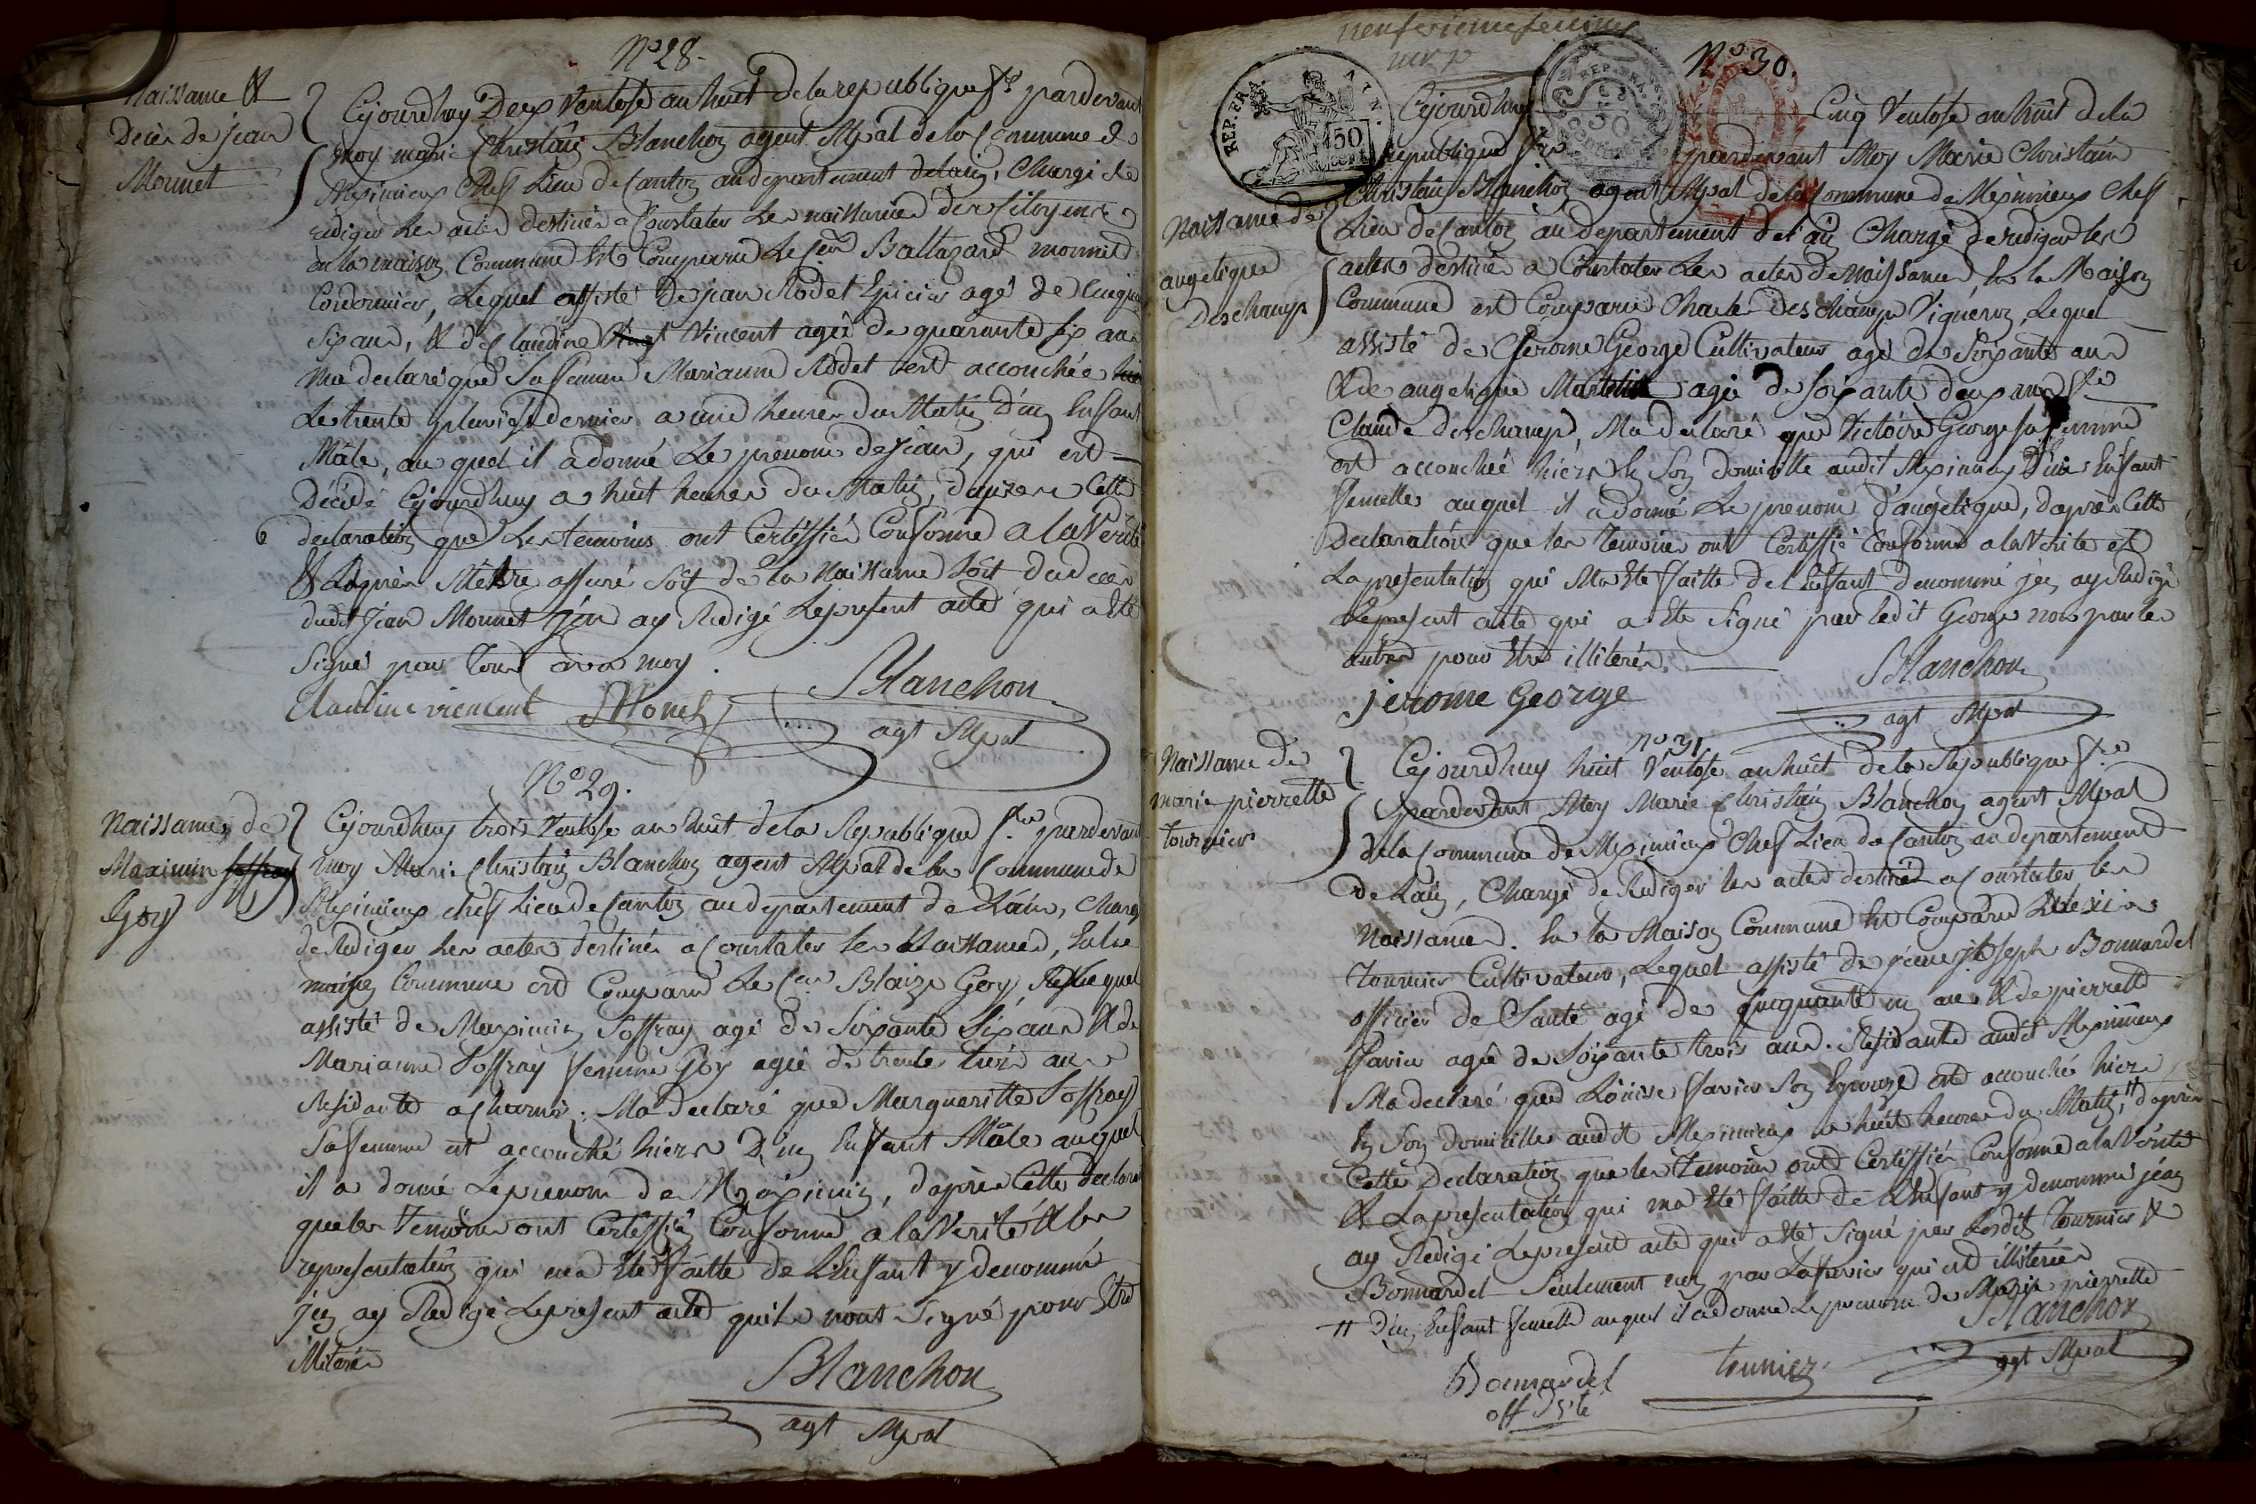 N° 28.
Naissance &
Décès de jean
Monnet
Cejourdhuy Deux Ventose an huit de la republique f.se pardevant
moy marie Christain Blanchon agent Mpal de la Commune de
Meximieux Chef Lieu de Canton au departement de lain, Chargé de
rédiger Les actes destinés a Constater Les naissances des Citoyens
en la maison Commune Est Comparu Le Cen Baltazard monnet
Cordonnier, Lequel assisté de jean Rodet Epicier agé de Cinquante
six ans, & de Claudine Vincent agée de quarante six ans
ma declaré que Sa femme Marianne Rodet est accouchée
Le trente pluviose dernier a une heure du Matin D'un Enfant
Mâle, au quel il a donné Le prenom de jean, qui est
Décédé Cejourdhuy a huit heures du Matin, d'après Cette
declaration que Les temoins ont Certiffiés Conforme a la Verité
& d'après M'être assuré Soit de la Naissance Soit du decès
dudit Jean Monnet j'en ay Redigé Le present acte qui a Eté
Signé par Tous avec moy.
Claudine viencent Monet Blanchon
agt Mpal
N° 29.
Naissance de
Maximin soffray
Goy
Cejourdhuy trois Ventose an huit de la Republique f.se pardevant
moy Marie Christain Blanchon agent Mpal de la Commune de
Meximieux chef Lieu de Canton au departement de Lain, Chargé
de Rediger Les actes destinés a Constater les Naissances, En la
maison Commune est Comparu Le Cen Blaize Goy, Lequel
assisté de Maximin Soffray agé de Soixante Six ans & de
Marianne Soffray femme Goy agée de trente trois ans
Residante a Charnoz. Ma declaré que Margueritte Soffray
Sa femme est accouché hiers D'un Enfant Mâle auquel
il a donné Le prenom de Maximin, d'après Cette declaration
que les Temoins ont Certiffiés Conforme a la Verité & la
representation qui ma Eté faitte de L'Enfant y denommé
j'en ay Redigé Le present acte quils nont Signé pour Etre
illiterés
Blanchon
agt Mpal
N° 30.
REP. FRA.
50
cent.
REP. FRA.
50
Naissance de
angelique
Deschamp
Cejourdhuy Cinq Ventose an huit de la
republique f.se pardevant Moy Marie Christain
Christain Blanchon agent Mpal de la Commune de Meximieux Chef
Lieu de Canton au departement de l'ain Chargé de rediger les
actes destinés a Constater Les actes de Naissances En la Maison
Commune est Comparu Claude Deschamp Vigneron, Lequel
assisté de Jerome George Cultivateur agé de Soixante ans
& de angelique agée de soixante deux ans
Claude deschamp, Ma declaré que Victoire George Sa femme
est accouchée hiers En Son domicille audit Meximieux D'un Enfant
femelle auquel il a donné Le prenom d'angelique, d'après Cette
Declaration que les Temoins ont Certiffié Conforme a la Verité et
La presentation qui Ma Eté faitte de l'Enfant denommé j'en ay Redigé
Le present acte qui a Eté Signé par ledit George non par les
autres pour Etre illiterés.
Blanchon
jerome George
agt Mpal
N° 31
Naissance de
marie pierrette
tournier
Cejourdhuy huit Ventose an huit de la Republique f.se
pardevant Moy Marie Christain Blanchon agent Mpal
de la Commune de Meximieux Chef Lieu de Canton au departement
de Lain, Chargé de Rediger les actes destinés a Constater les
Naissances. En la Maison Commune Est Comparu Alexis
Tournier Cultivateur, Lequel assisté de joseph Bonnardel
officier de Santé agé de Cinquante un ans & de pierrette
favier agée de Soixante trois ans. Residante audit Meximieux
Ma declaré que Louise favier Son Epouze est accouché hiers
En Son domicille audit Meximieux a huit heures du Matin, # d'après
Cette Declaration que les Temoins ont Certiffiés Conforme a la Vérité
& La presentation qui ma Eté faitte de L'Enfant y denommé j'en
ay Redigé Le present acte qui a Eté Signé par Lesdits Tournier &
Bonnardel Seulement non par La favier qui est illiterée
# D'un Enfant femelle auquel il a donné Le prenom de Marie pierrette
Blanchon
Bonnardel tournier agt Mpal
off de S.té